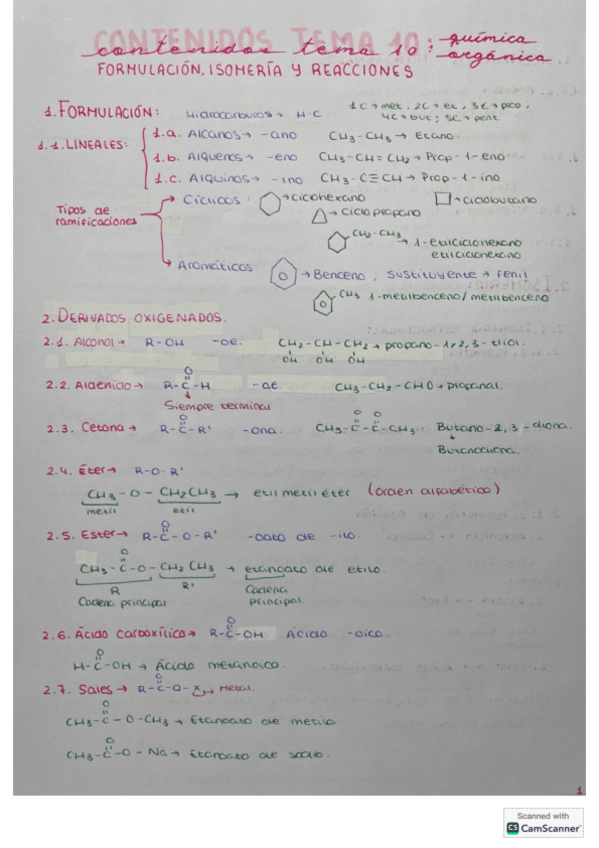 CONTENIDOS TEMA 10
contenidos tema 10: química orgánica
FORMULACIÓN, ISOMERÍA Y REACCIONES
1. FORMULACIÓN: Hidrocarburos → H-C. 1C → met, 2C → et, 3C → prop,
4C → but; 5C → pent
1.1. LINEALES: 1.a. Alcanos → -ano CH3-CH3 → Etano.
1.b. Alquenos → -eno CH3-CH=CH2 → Prop-1-eno
1.c. Alquinos → -ino CH3-C≡CH → Prop-1-ino
Tipos de ramificaciones
Cíclicos: → ciclohexano → ciclobutano
→ ciclopropano
CH2-CH3 → 1-etilciclohexano
etilciclohexano
Aromáticos: → Benceno, sustituyente → fenil
CH3 1-metilbenceno/metilbenceno
2. DERIVADOS OXIGENADOS.
2.1. Alcohol → R-OH -ol. CH2-CH-CH2 → propano-1,2,3-triol.
OH OH OH
O
2.2. Aldehído → R-C-H -al CH3-CH2-CHO → propanal.
Siempre terminal
O O O
2.3. Cetona → R-C-R' -ona. CH3-C-C-CH3 Butano-2,3-diona.
Butanodiona.
2.4. Éter → R-O-R'
CH3-O-CH2CH3 → etil metil éter (orden alfabético)
metil etil
O
2.5. Ester → R-C-O-R' -oato de -ilo.
O
CH3-C-O-CH2CH3 → etanoato de etilo.
R R' Cadena principal.
Cadena principal
O
2.6. Ácido carboxílico → R-C-OH Ácido -oico.
O
H-C-OH → Ácido metanoico.
O
2.7. Sales → R-C-O-x → Metal.
O
CH3-C-O-CH3 → Etanoato de metilo
O
CH3-C-O-Na → Etanoato de sodio.
1
Scanned with
CS CamScanner